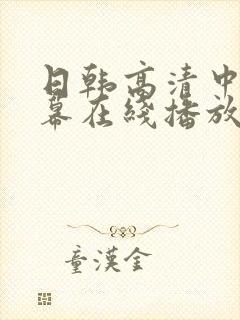 日韩高清中
幕在线播放
童漢金